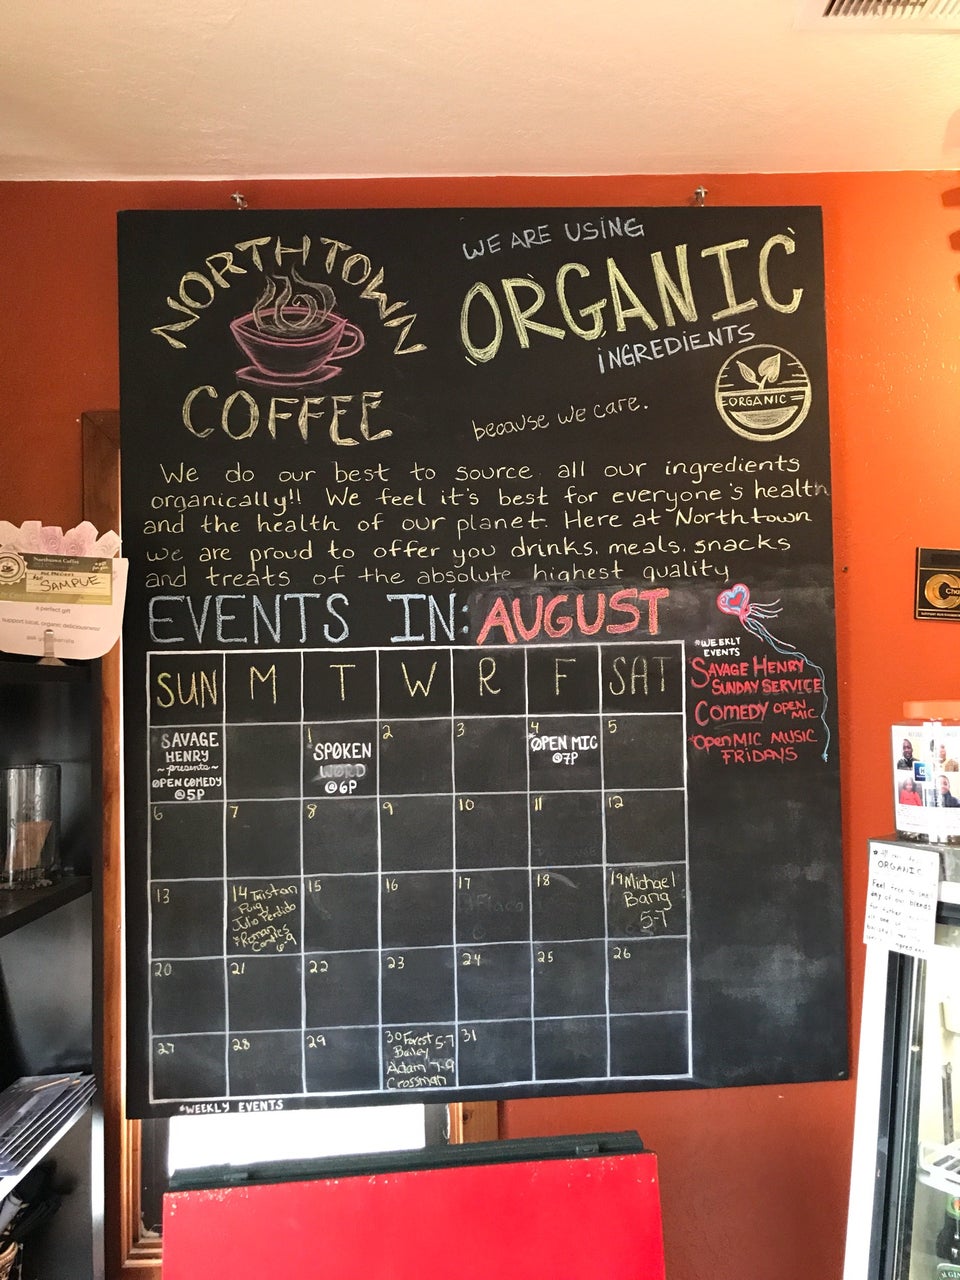 NORTHTOWN
COFFEE
WE ARE USING
ORGANIC
iNGREDiENTS
because we care.
ORGANIC
We do our best to source all our ingredients
organically!! We feel it's best for everyone's health
and the health of our planet. Here at Northtown
we are proud to offer you drinks. meals. snacks
and treats of the absolute highest quality
EVENTS IN: AUGUST
SUN M T W R F SAT
SAVAGE
HENRY
~presents~
OPEN COMEDY
@5P
1
SPOKEN
WORD
@6P
2
3
4
OPEN MIC
@7P
5
6
7
8
9
10
11
12
13
14 Tristan
Puig
Julio Perdido
Roman
Candles
6-9
15
16
17
18
19 Michael
Bang
5-7
20
21
22
23
24
25
26
27
28
29
30 Forest 5-7
Bailey
Adam 7-9
Crossman
31
*WEEKLY EVENTS
*WEEKLY
EVENTS
*SAVAGE HENRY
SUNDAY SERVICE
COMEDY OPEN
MIC
*OPEN MIC MUSIC
FRIDAYS
Northtown Coffee
SAMPLE
a perfect gift
support local, organic deliciousness!
ORGANIC
Feel free to
any of our blends